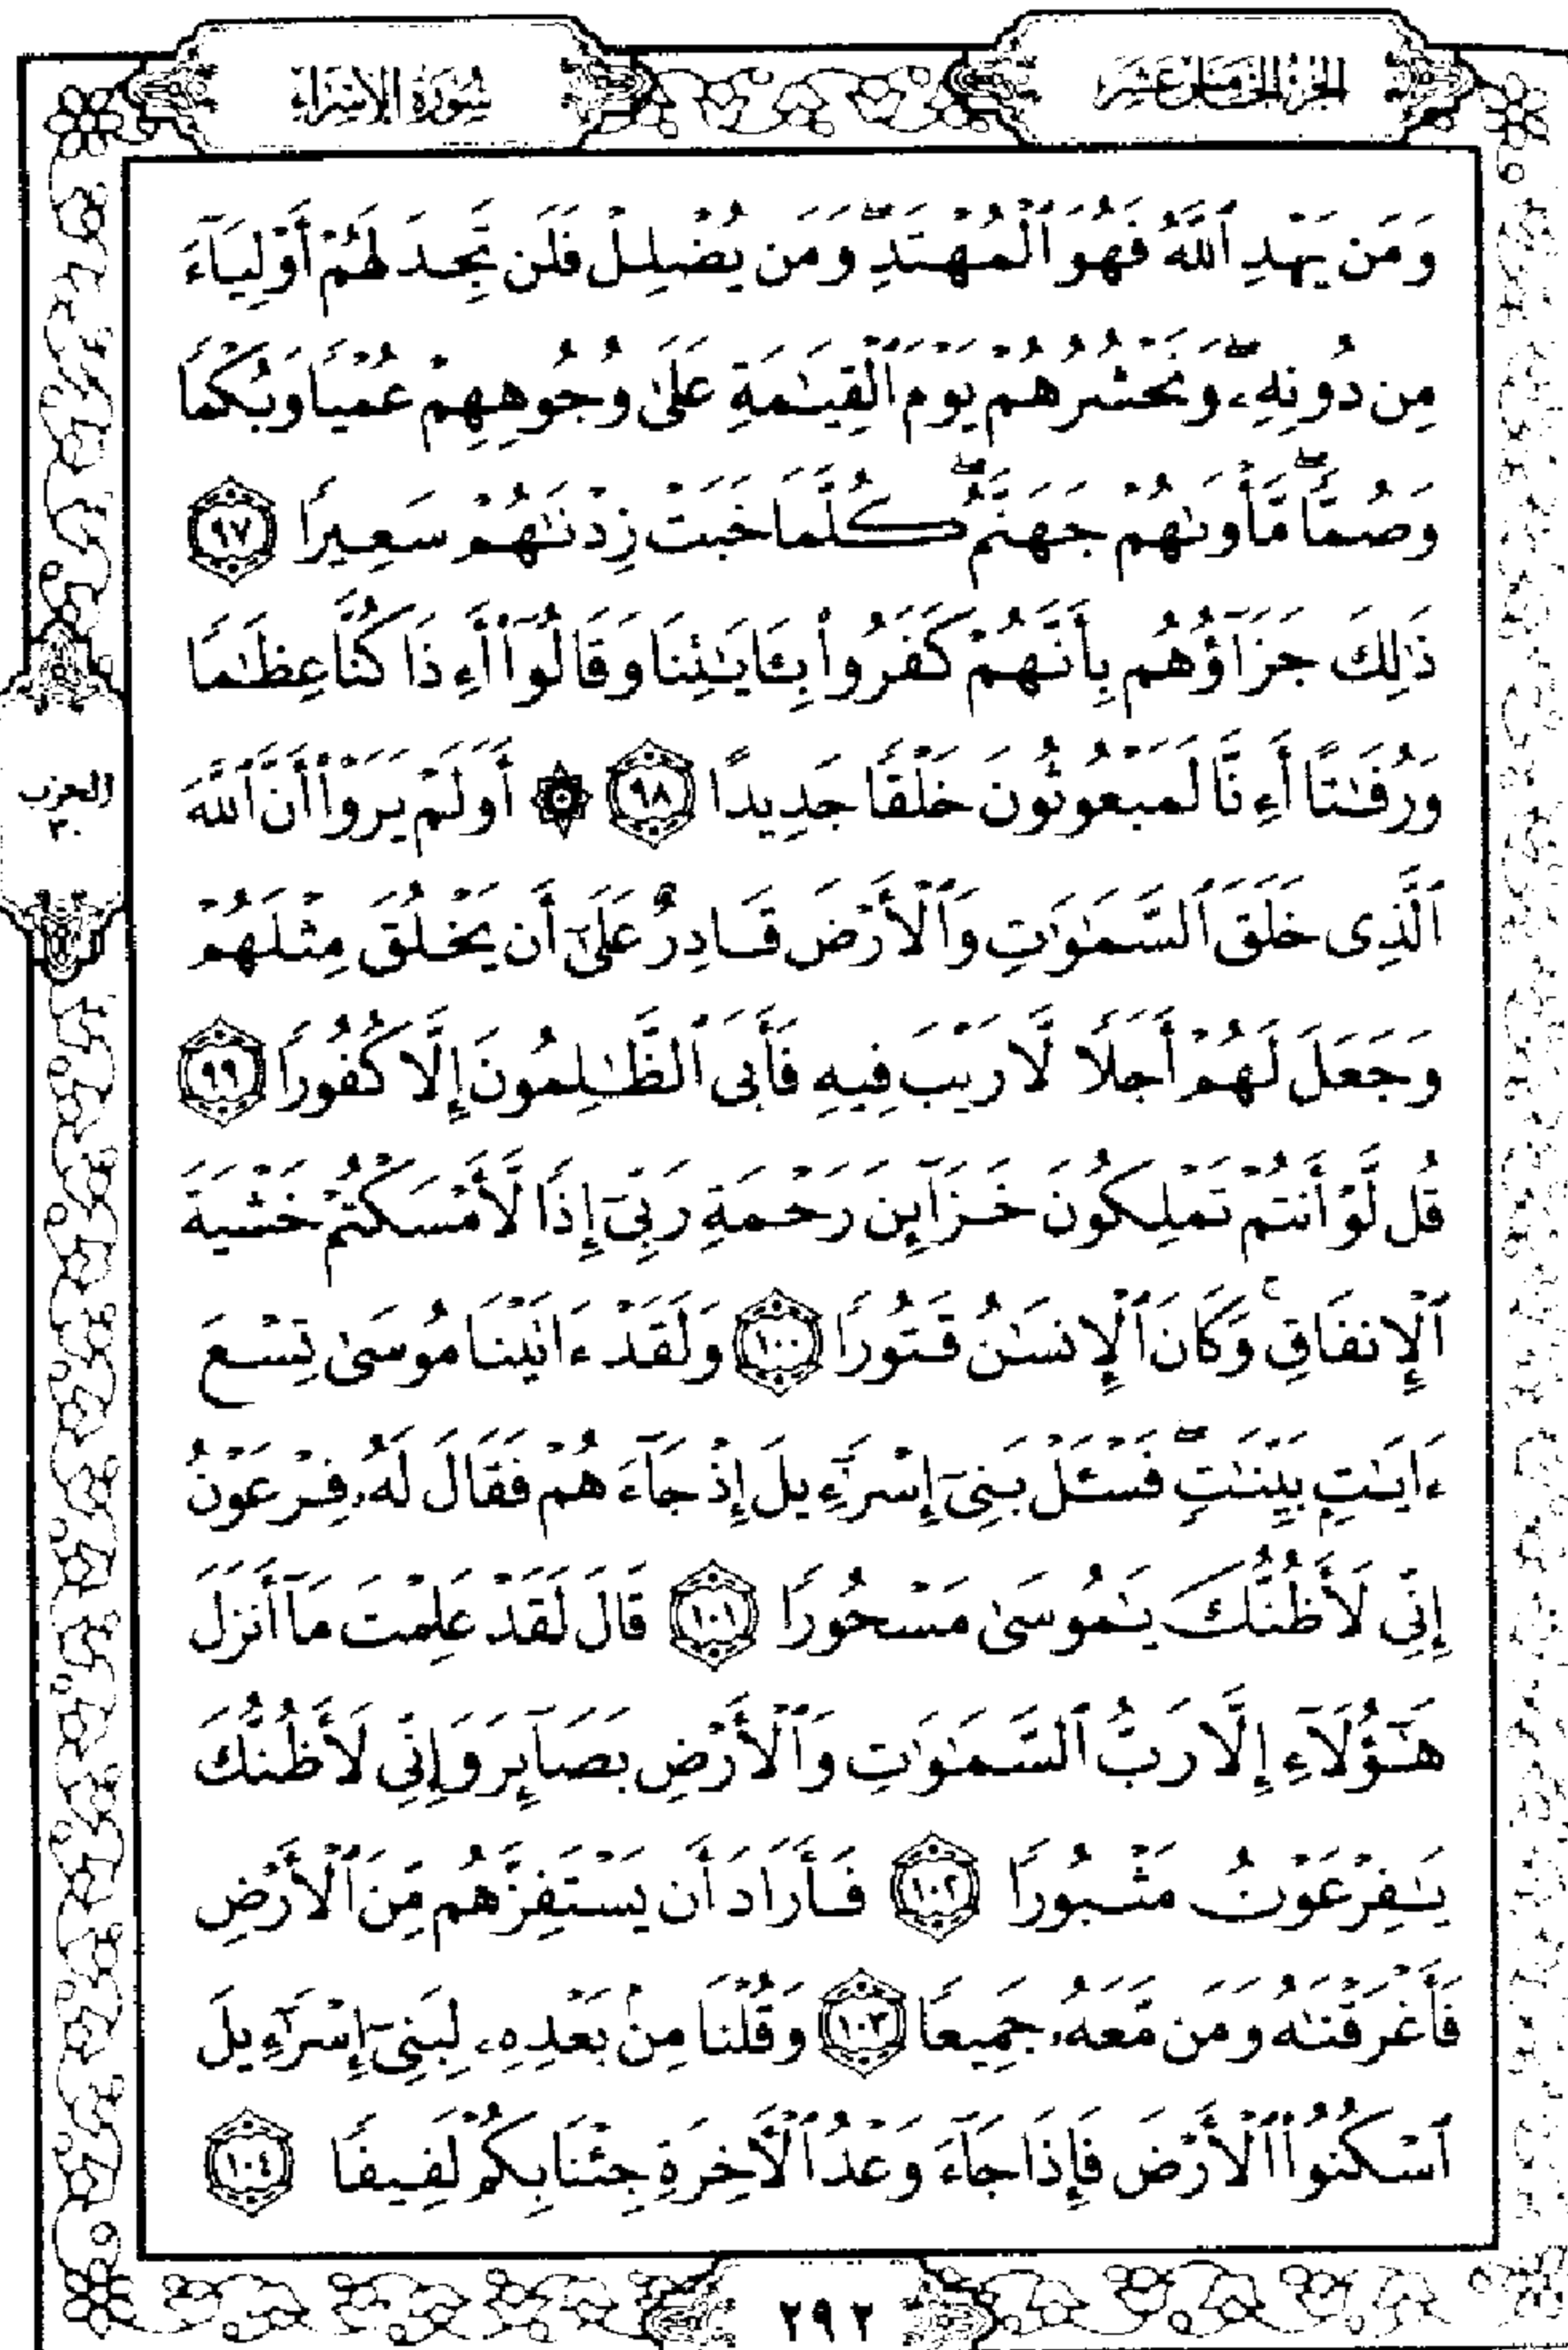 الجزء الخامس عشر
سورة الإسراء
وَمَن يَهْدِ ٱللَّهُ فَهُوَ ٱلْمُهْتَدِۖ وَمَن يُضْلِلْ فَلَن تَجِدَ لَهُمْ أَوْلِيَآءَ
مِن دُونِهِۦۖ وَنَحْشُرُهُمْ يَوْمَ ٱلْقِيَٰمَةِ عَلَىٰ وُجُوهِهِمْ عُمْيًا وَبُكْمًا
وَصُمًّاۖ مَّأْوَىٰهُمْ جَهَنَّمُۖ كُلَّمَا خَبَتْ زِدْنَٰهُمْ سَعِيرًا ٩٧
ذَٰلِكَ جَزَآؤُهُم بِأَنَّهُمْ كَفَرُوا۟ بِـَٔايَٰتِنَا وَقَالُوٓا۟ أَءِذَا كُنَّا عِظَٰمًا
وَرُفَٰتًا أَءِنَّا لَمَبْعُوثُونَ خَلْقًا جَدِيدًا ٩٨ ۞ أَوَلَمْ يَرَوْا۟ أَنَّ ٱللَّهَ
ٱلَّذِى خَلَقَ ٱلسَّمَٰوَٰتِ وَٱلْأَرْضَ قَادِرٌ عَلَىٰٓ أَن يَخْلُقَ مِثْلَهُمْ
وَجَعَلَ لَهُمْ أَجَلًا لَّا رَيْبَ فِيهِ فَأَبَى ٱلظَّٰلِمُونَ إِلَّا كُفُورًا ٩٩
قُل لَّوْ أَنتُمْ تَمْلِكُونَ خَزَآئِنَ رَحْمَةِ رَبِّىٓ إِذًا لَّأَمْسَكْتُمْ خَشْيَةَ
ٱلْإِنفَاقِۚ وَكَانَ ٱلْإِنسَٰنُ قَتُورًا ١٠٠ وَلَقَدْ ءَاتَيْنَا مُوسَىٰ تِسْعَ
ءَايَٰتٍۭ بَيِّنَٰتٍۖ فَسْـَٔلْ بَنِىٓ إِسْرَٰٓءِيلَ إِذْ جَآءَهُمْ فَقَالَ لَهُۥ فِرْعَوْنُ
إِنِّى لَأَظُنُّكَ يَٰمُوسَىٰ مَسْحُورًا ١٠١ قَالَ لَقَدْ عَلِمْتَ مَآ أَنزَلَ
هَٰٓؤُلَآءِ إِلَّا رَبُّ ٱلسَّمَٰوَٰتِ وَٱلْأَرْضِ بَصَآئِرَ وَإِنِّى لَأَظُنُّكَ
يَٰفِرْعَوْنُ مَثْبُورًا ١٠٢ فَأَرَادَ أَن يَسْتَفِزَّهُم مِّنَ ٱلْأَرْضِ
فَأَغْرَقْنَٰهُ وَمَن مَّعَهُۥ جَمِيعًا ١٠٣ وَقُلْنَا مِنۢ بَعْدِهِۦ لِبَنِىٓ إِسْرَٰٓءِيلَ
ٱسْكُنُوا۟ ٱلْأَرْضَ فَإِذَا جَآءَ وَعْدُ ٱلْءَاخِرَةِ جِئْنَا بِكُمْ لَفِيفًا ١٠٤
الحزب
٣٠
٢٩٢